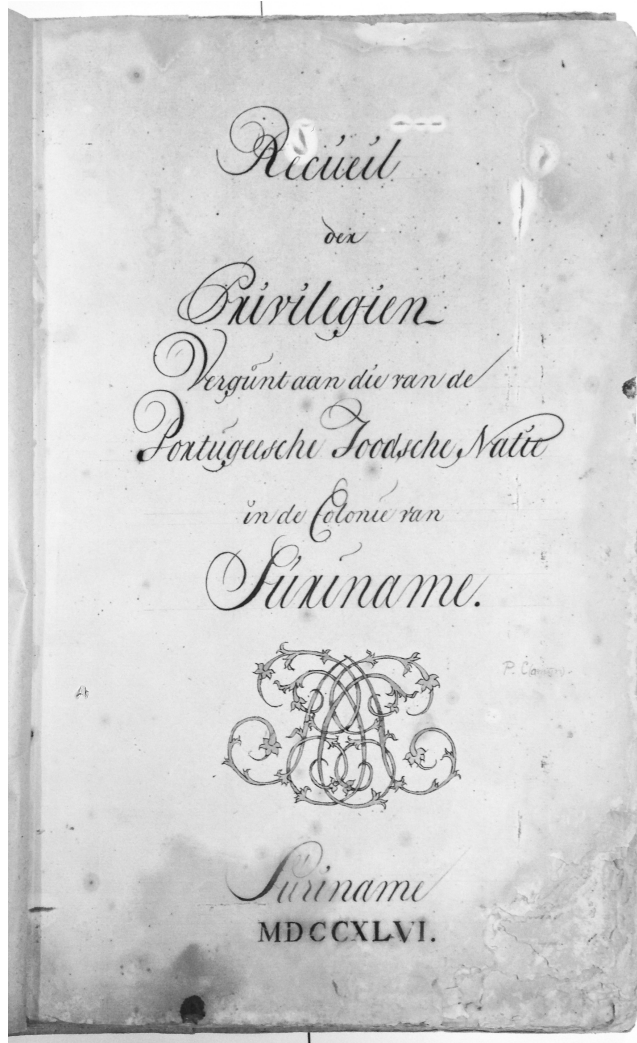 Recüeil
der
Privilegien
Vergünt aan die van de
Portugeesche Joodsche Natie
in de Colonie van
Süriname.
Suriname
MDCCXLVI.